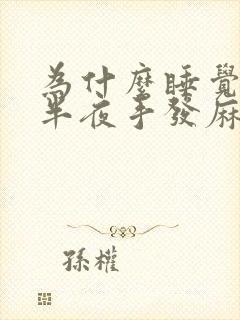 為什麼睡覺
半夜手發麻
孫權